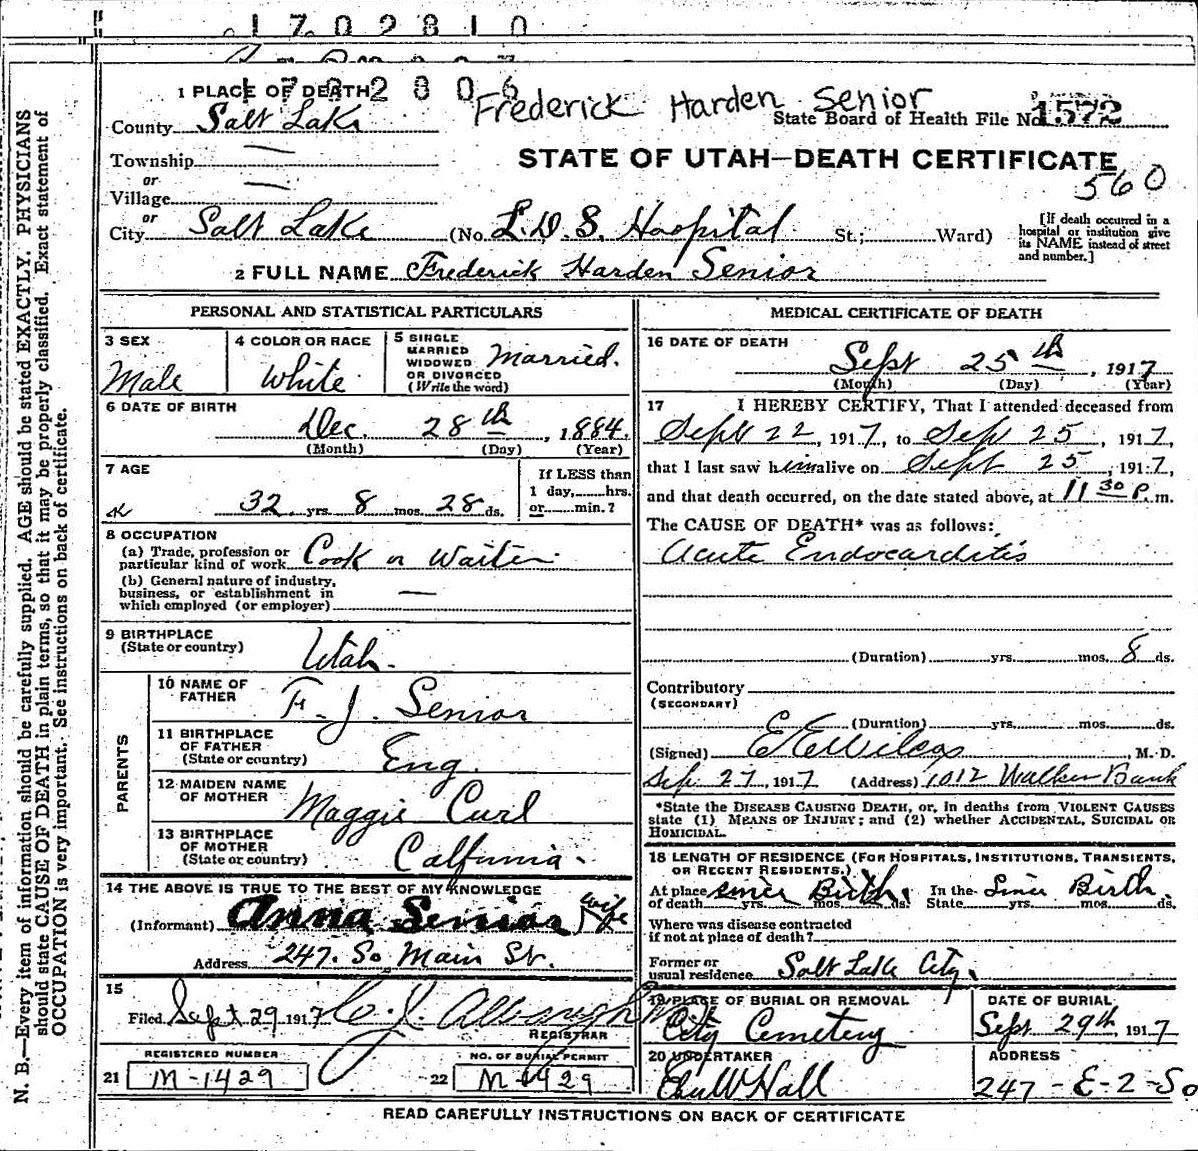 1702810
1 PLACE OF DEATH 2806
Frederick Harden Senior
County Salt Lake
State Board of Health File No. 1572
Township —
STATE OF UTAH—DEATH CERTIFICATE
or
Village —
560
or
City Salt Lake (No. L.D.S. Hospital St.; Ward)
[If death occurred in a hospital or institution give its NAME instead of street and number.]
2 FULL NAME Frederick Harden Senior
PERSONAL AND STATISTICAL PARTICULARS
3 SEX
Male
4 COLOR OR RACE
White
5 SINGLE
MARRIED
WIDOWED
OR DIVORCED
(Write the word)
Married.
6 DATE OF BIRTH
Dec. 28th, 1884.
(Month) (Day) (Year)
7 AGE
32 yrs. 8 mos. 28 ds.
If LESS than
1 day,......hrs.
or......min.?
8 OCCUPATION
(a) Trade, profession or
particular kind of work Cook or Waiter
(b) General nature of industry,
business, or establishment in
which employed (or employer) —
9 BIRTHPLACE
(State or country)
Utah.
PARENTS
10 NAME OF
FATHER
F. J. Senior
11 BIRTHPLACE
OF FATHER
(State or country)
Eng.
12 MAIDEN NAME
OF MOTHER
Maggie Curl
13 BIRTHPLACE
OF MOTHER
(State or country)
Calfurnia.
14 THE ABOVE IS TRUE TO THE BEST OF MY KNOWLEDGE
(Informant) Anna Senior wife
Address 247. So Main St.
15
Filed Sept 29 1917
REGISTRAR
REGISTERED NUMBER
21 M-1429
NO. OF BURIAL PERMIT
22 M-1429
MEDICAL CERTIFICATE OF DEATH
16 DATE OF DEATH
Sept 25th, 1917
(Month) (Day) (Year)
17 I HEREBY CERTIFY, That I attended deceased from
Sept 22, 1917, to Sep 25, 1917,
that I last saw him alive on Sept 25, 1917,
and that death occurred, on the date stated above, at 11 30 P. m.
The CAUSE OF DEATH* was as follows:
Acute Endocarditis
(Duration) yrs. mos. 8 ds.
Contributory
(SECONDARY)
(Duration) yrs. mos. ds.
(Signed) E E Wilcox, M. D.
Sep 27, 1917 (Address) 1012 Walker Bank
*State the DISEASE CAUSING DEATH, or, in deaths from VIOLENT CAUSES
state (1) MEANS OF INJURY; and (2) whether ACCIDENTAL, SUICIDAL OR
HOMICIDAL.
18 LENGTH OF RESIDENCE (FOR HOSPITALS, INSTITUTIONS, TRANSIENTS,
OR RECENT RESIDENTS.)
At place
of death Since Birth. yrs. mos. ds. In the
State Since Birth. yrs. mos. ds.
Where was disease contracted
if not at place of death?
Former or
usual residence Salt Lake City.
19 PLACE OF BURIAL OR REMOVAL
City Cemetery
DATE OF BURIAL
Sept 29th, 1917
20 UNDERTAKER
Hall
ADDRESS
247-E-2-So
READ CAREFULLY INSTRUCTIONS ON BACK OF CERTIFICATE
N. B.—Every item of information should be carefully supplied. AGE should be stated EXACTLY. PHYSICIANS
should state CAUSE OF DEATH in plain terms, so that it may be properly classified. Exact statement of
OCCUPATION is very important. See instructions on back of certificate.